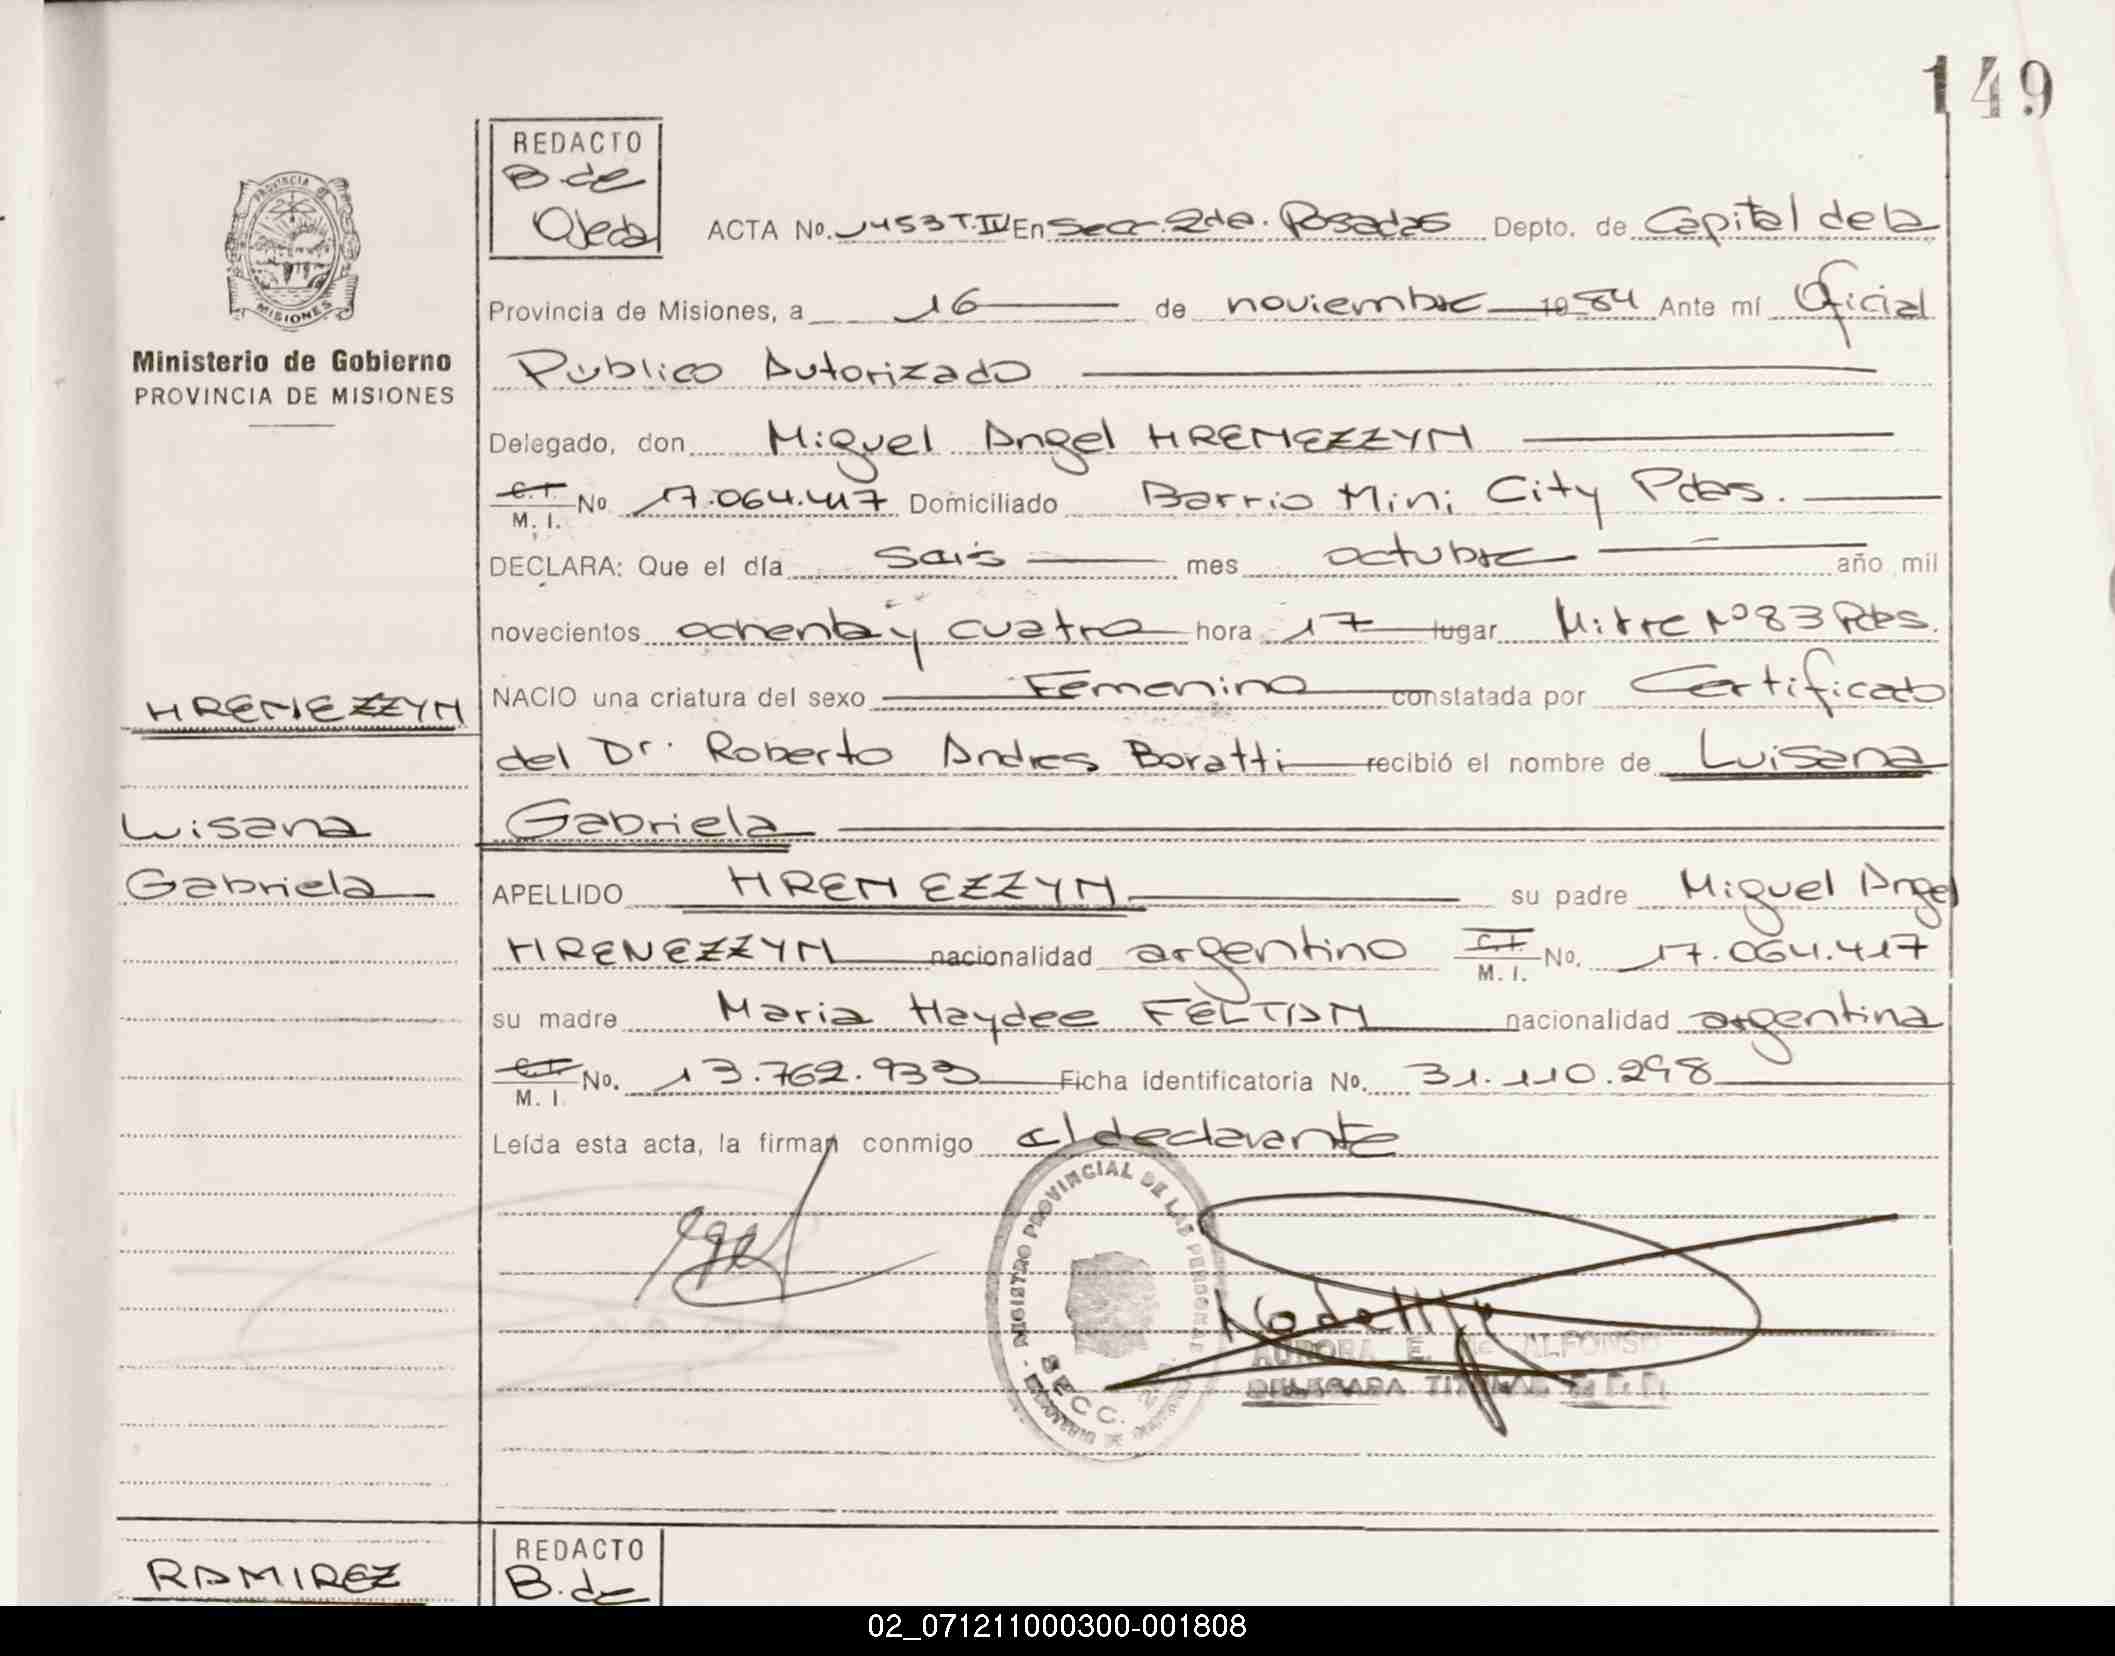 149
REDACTO
B. de
Ojeda
PROVINCIA DE
MISIONES
Ministerio de Gobierno
PROVINCIA DE MISIONES
ACTA No. 1453 T. IV En Secc. 2da. Posadas Depto. de Capital de la
Provincia de Misiones, a 16 de noviembre 1984 Ante mí Oficial
Público Autorizado
Delegado, don Miguel Angel HRENEZZYN
C.I. M. I. No 17.064.417 Domiciliado Barrio Mini City Pdas.
DECLARA: Que el día sais mes octubre año mil
novecientos ochenta y cuatro hora 17 lugar Mitre Nº 83 Pdas.
HRENEZZYN
NACIO una criatura del sexo Femenino constatada por Certificado
del Dr. Roberto Andres Boratti recibió el nombre de Luisana
Luisana
Gabriela
Gabriela
APELLIDO HRENEZZYN su padre Miguel Angel
HRENEZZYN nacionalidad argentino C.I. M. I. No. 17.064.417
su madre Maria Haydee FELTAN nacionalidad argentina
C.I. M. I. No. 13.762.933 Ficha identificatoria No. 31.110.298
Leída esta acta, la firman conmigo el declarante
REGISTRO PROVINCIAL DE LAS PERSONAS
SECC. 2
AURORA E. de ALFONSO
DELEGADA TITULAR
RAMIREZ
REDACTO
B. de
02_071211000300-001808